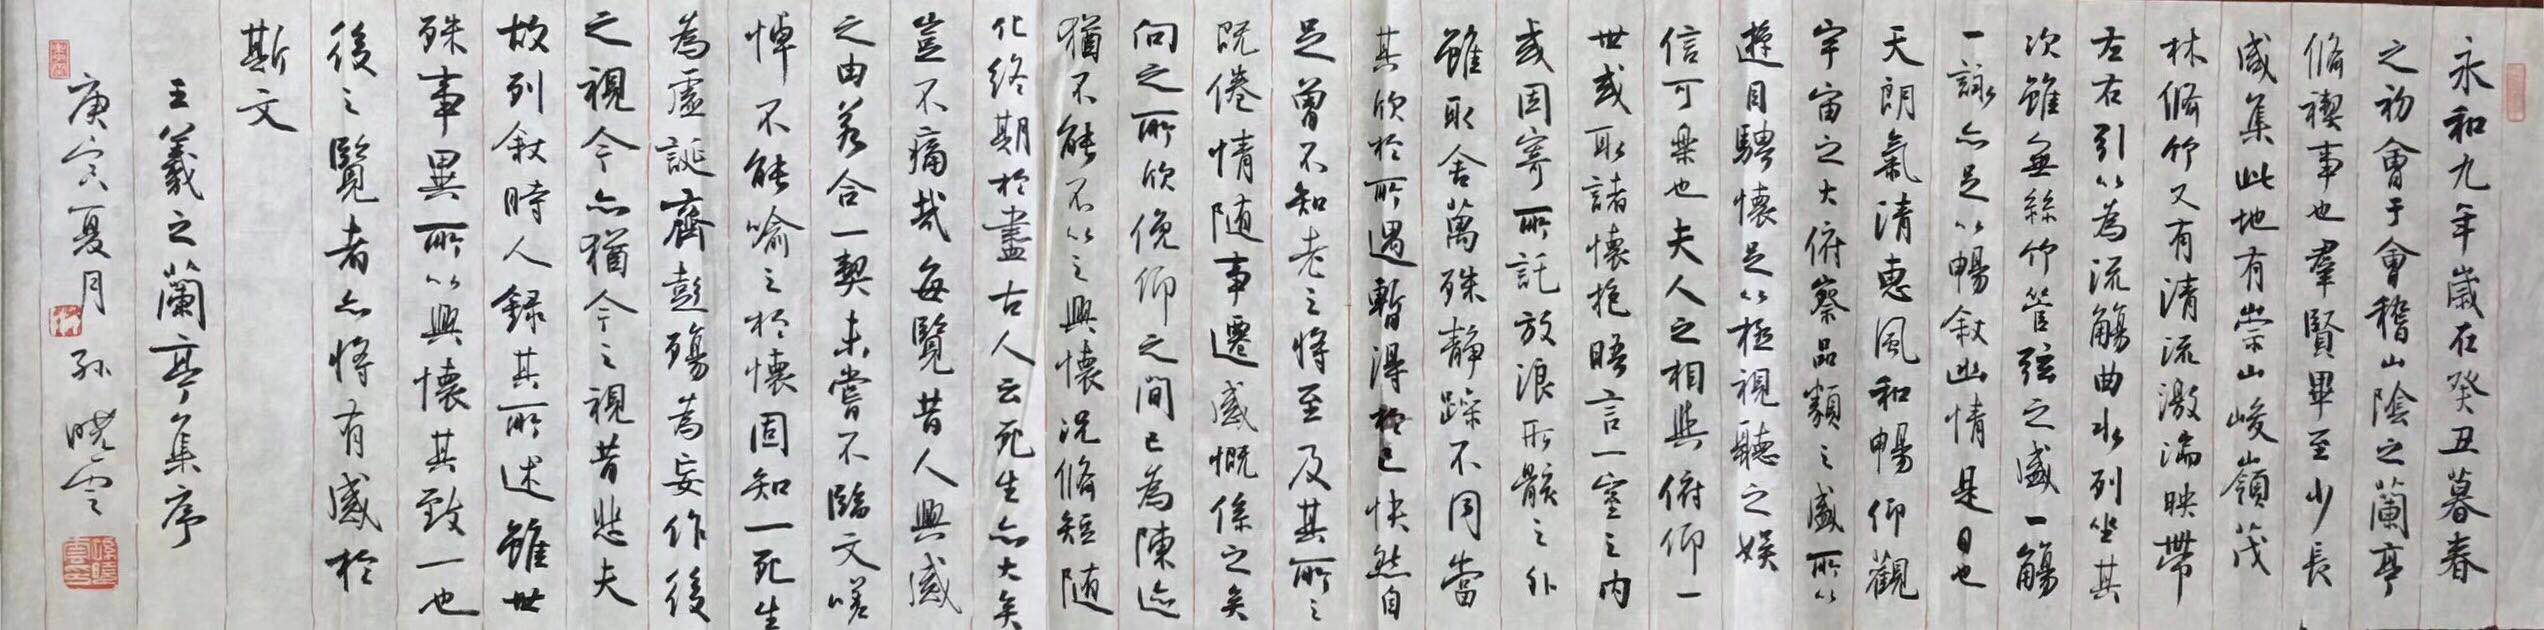 永和九年歲在癸丑暮春
之初會于會稽山陰之蘭亭
脩禊事也羣賢畢至少長
咸集此地有崇山峻嶺茂
林脩竹又有清流激湍映帶
左右引以為流觴曲水列坐其
次雖無絲竹管弦之盛一觴
一詠亦足以暢敘幽情是日也
天朗氣清惠風和暢仰觀
宇宙之大俯察品類之盛所以
遊目騁懷足以極視聽之娛
信可樂也夫人之相與俯仰一
世或取諸懷抱晤言一室之內
或因寄所託放浪形骸之外
雖取舍萬殊靜躁不同當
其欣於所遇暫得於己快然自
足曾不知老之將至及其所之
既倦情随事遷感慨係之矣
向之所欣俛仰之間已為陳迹
猶不能不以之興懷況脩短随
化終期於盡古人云死生亦大矣
豈不痛哉每覽昔人興感
之由若合一契未嘗不臨文嗟
悼不能喻之於懷固知一死生
為虛誕齊彭殤為妄作後
之視今亦猶今之視昔悲夫
故列敘時人録其所述雖世
殊事異所以興懷其致一也
後之覽者亦將有感於
斯文
王羲之蘭亭集序
庚寅夏月 孙晓云